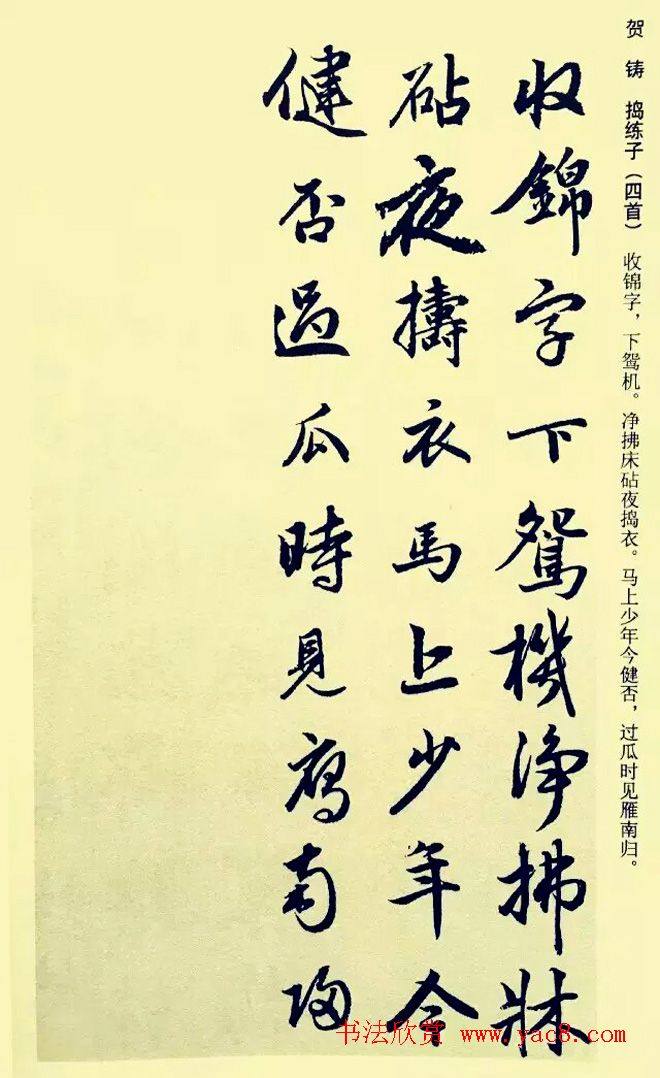 贺铸 捣练子（四首） 收锦字，下鸳机。净拂床砧夜捣衣。马上少年今健否，过瓜时见雁南归。
收錦字下鴛機淨拂牀
砧夜擣衣馬上少年今
健否過瓜時見雁南歸
书法欣赏 www.yac8.com